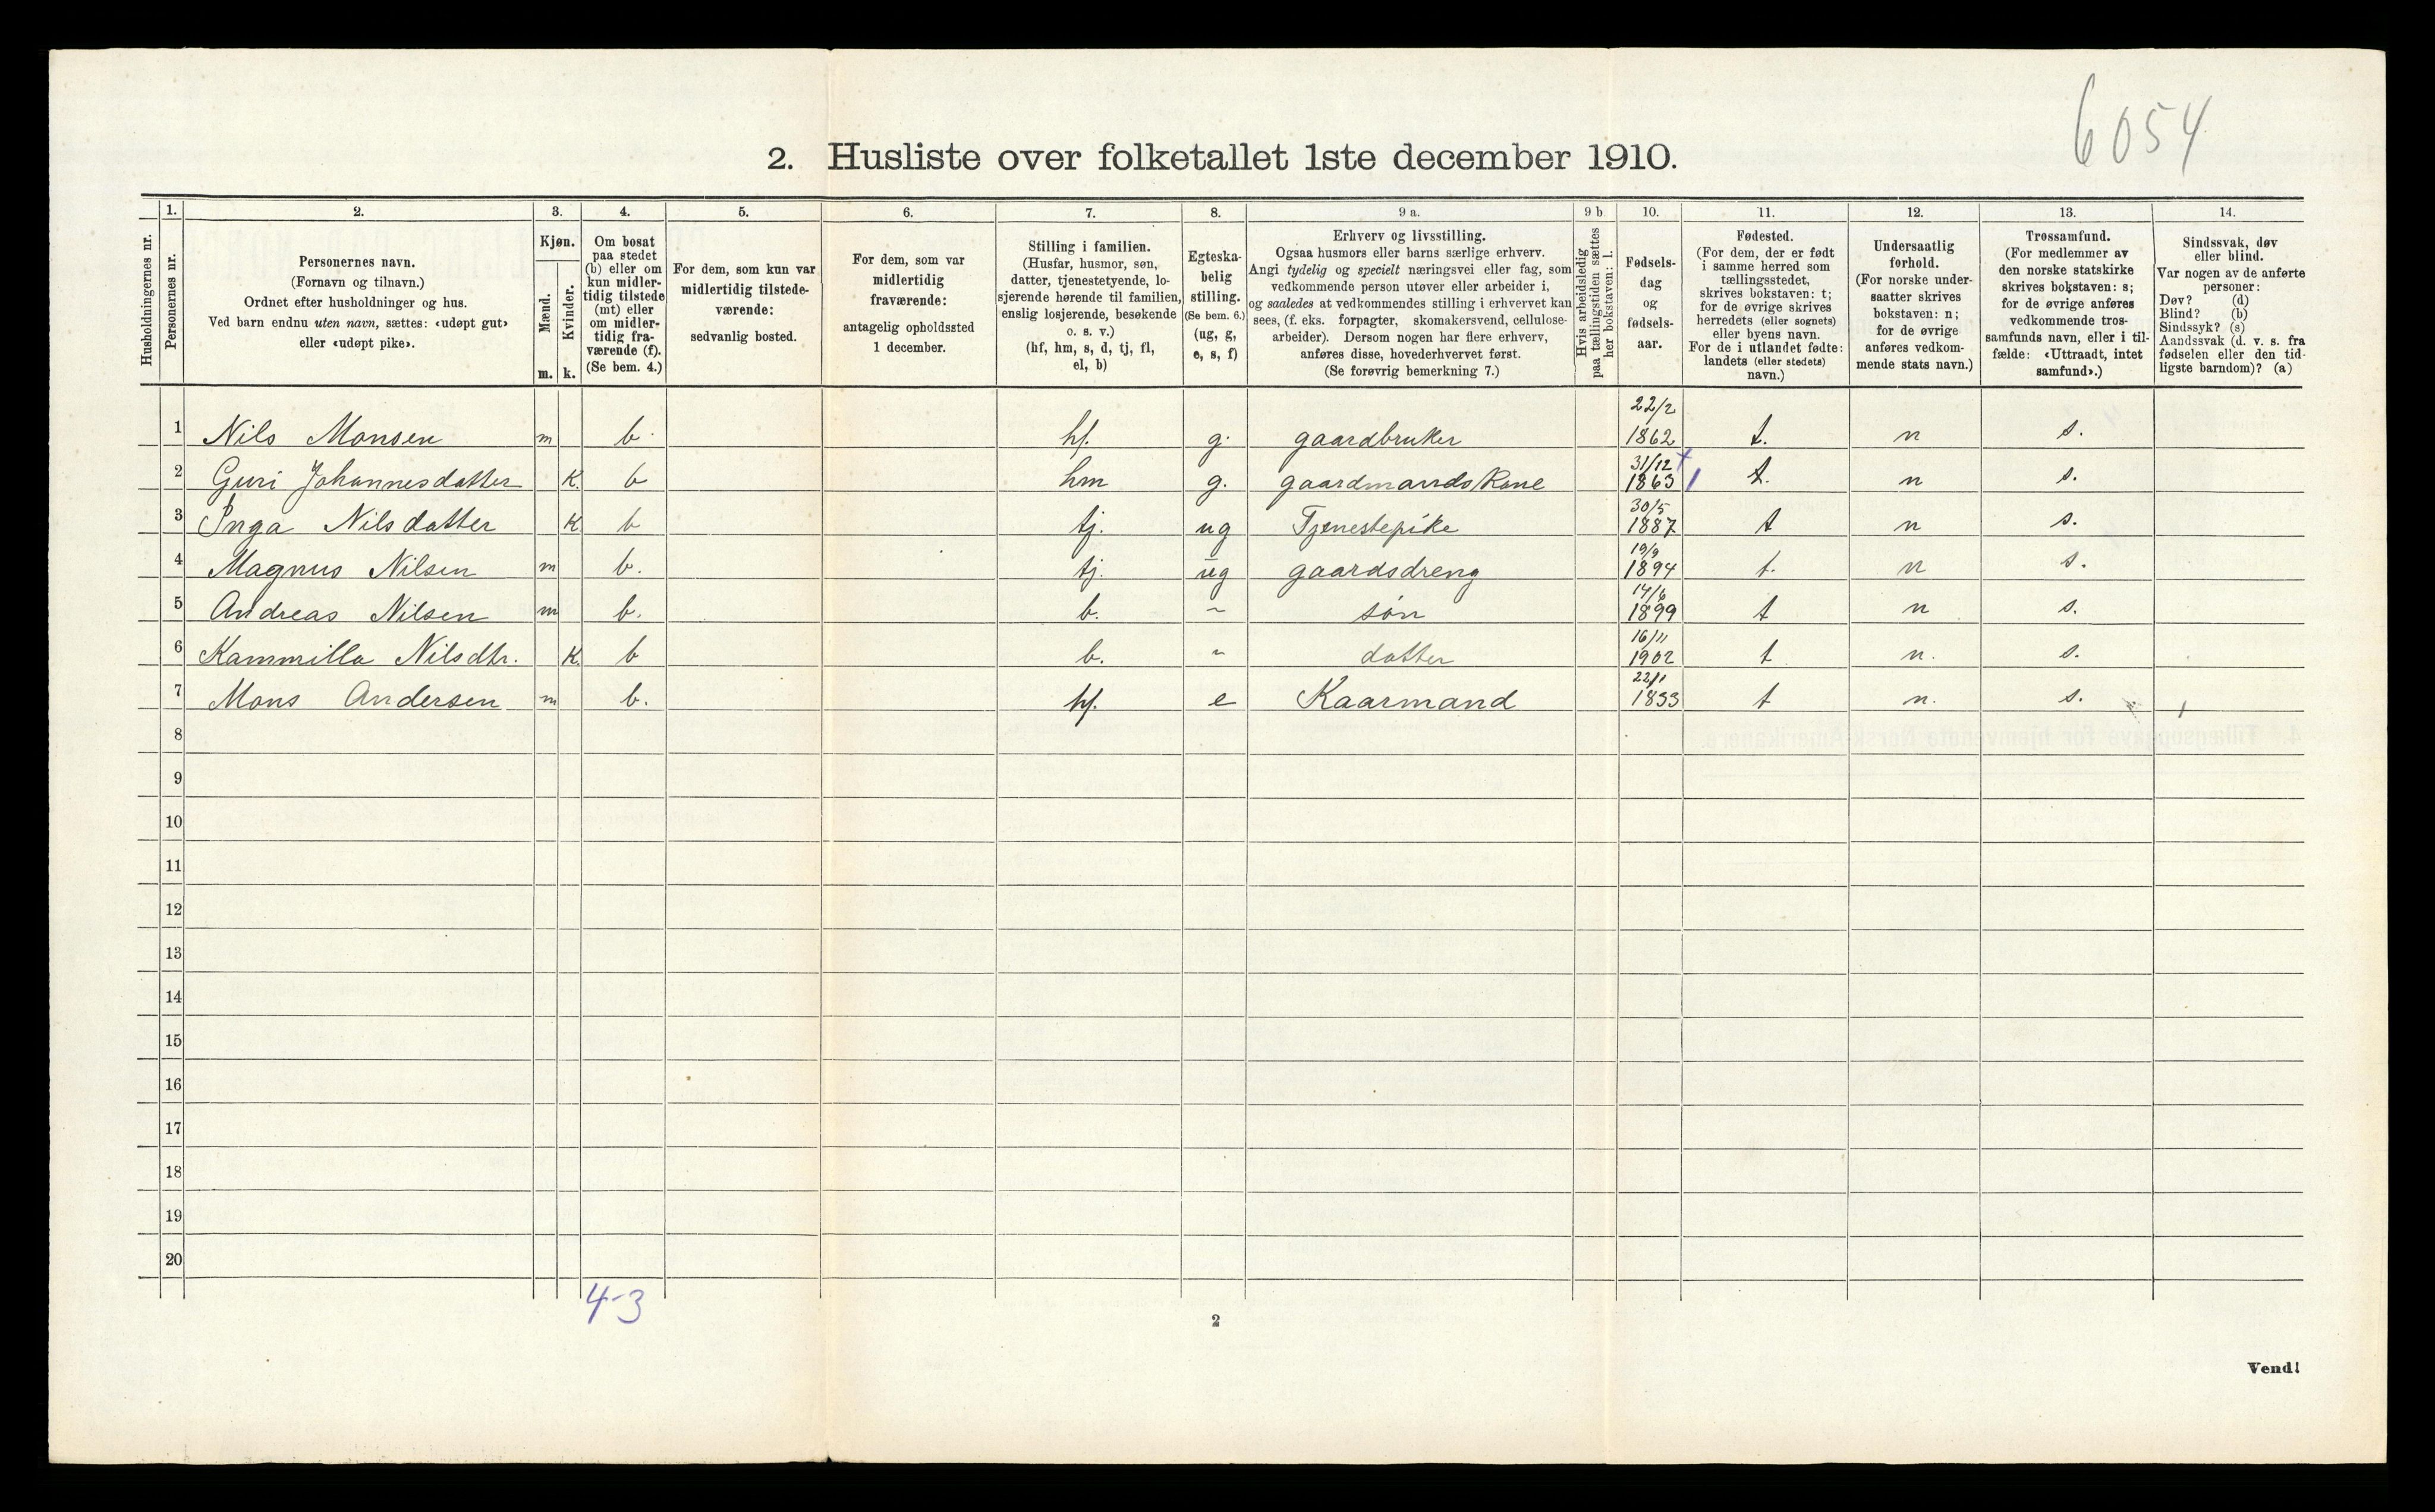 6054
2. Husliste over folketallet 1ste december 1910.
Husholdningernes nr.
1.
Personernes nr.
2.
Personernes navn.
(Fornavn og tilnavn.)
Ordnet efter husholdninger og hus.
Ved barn endnu uten navn, sættes: «udøpt gut»
eller «udøpt pike».
3.
Kjøn.
Mænd.
Kvinder.
m. k.
4.
Om bosat
paa stedet
(b) eller om
kun midler-
tidig tilstede
(mt) eller
om midler-
tidig fra-
værende (f).
(Se bem. 4.)
5.
For dem, som kun var
midlertidig tilstede-
værende:
sedvanlig bosted.
6.
For dem, som var
midlertidig
fraværende:
antagelig opholdssted
1 december.
7.
Stilling i familien.
(Husfar, husmor, søn,
datter, tjenestetyende, lo-
sjerende hørende til familien,
enslig losjerende, besøkende
o. s. v.)
(hf, hm, s, d, tj, fl,
el, b)
8.
Egteska-
belig
stilling.
(Se bem. 6.)
(ug, g,
e, s, f)
9 a.
Erhverv og livsstilling.
Ogsaa husmors eller barns særlige erhverv.
Angi tydelig og specielt næringsvei eller fag, som
vedkommende person utøver eller arbeider i,
og saaledes at vedkommendes stilling i erhvervet kan
sees, (f. eks. forpagter, skomakersvend, cellulose-
arbeider). Dersom nogen har flere erhverv,
anføres disse, hovederhvervet først.
(Se forøvrig bemerkning 7.)
9 b
Hvis arbeidsledig
paa tællingstiden sættes
her bokstaven: l.
10.
Fødsels-
dag
og
fødsels-
aar.
11.
Fødested.
(For dem, der er født
i samme herred som
tællingsstedet,
skrives bokstaven: t;
for de øvrige skrives
herredets (eller sognets)
eller byens navn.
For de i utlandet fødte:
landets (eller stedets)
navn.)
12.
Undersaatlig
forhold.
(For norske under-
saatter skrives
bokstaven: n;
for de øvrige
anføres vedkom-
mende stats navn.)
13.
Trossamfund.
(For medlemmer av
den norske statskirke
skrives bokstaven: s;
for de øvrige anføres
vedkommende tros-
samfunds navn, eller i til-
fælde: «Uttraadt, intet
samfund».)
14.
Sindssvak, døv
eller blind.
Var nogen av de anførte
personer:
Døv? (d)
Blind? (b)
Sindssyk? (s)
Aandssvak (d. v. s. fra
fødselen eller den tid-
ligste barndom)? (a)
1 Nils Monsen m b. hf. g. gaardbruker 22/2 1862 t. n s.
2 Guri Johannesdatter K. b hm g. gaardmandskone 31/12 1863 t. n s.
3 Inga Nilsdatter K b tj. ug Tjenestepike 30/5 1887 t n s.
4 Magnus Nilsen m b. tj. ug gaardsdreng 19/9 1894 t. n s.
5 Andreas Nilsen m b. b. ~ søn 14/6 1899 t n s.
6 Kammilla Nilsdtr. K. b b. ~ datter 16/11 1902 t n. s.
7 Mons Andersen m b. hf. e Kaarmand 22/1 1833 t n. s.
8
9
10
11
12
13
14
15
16
17
18
19
20
4-3
2
Vend!